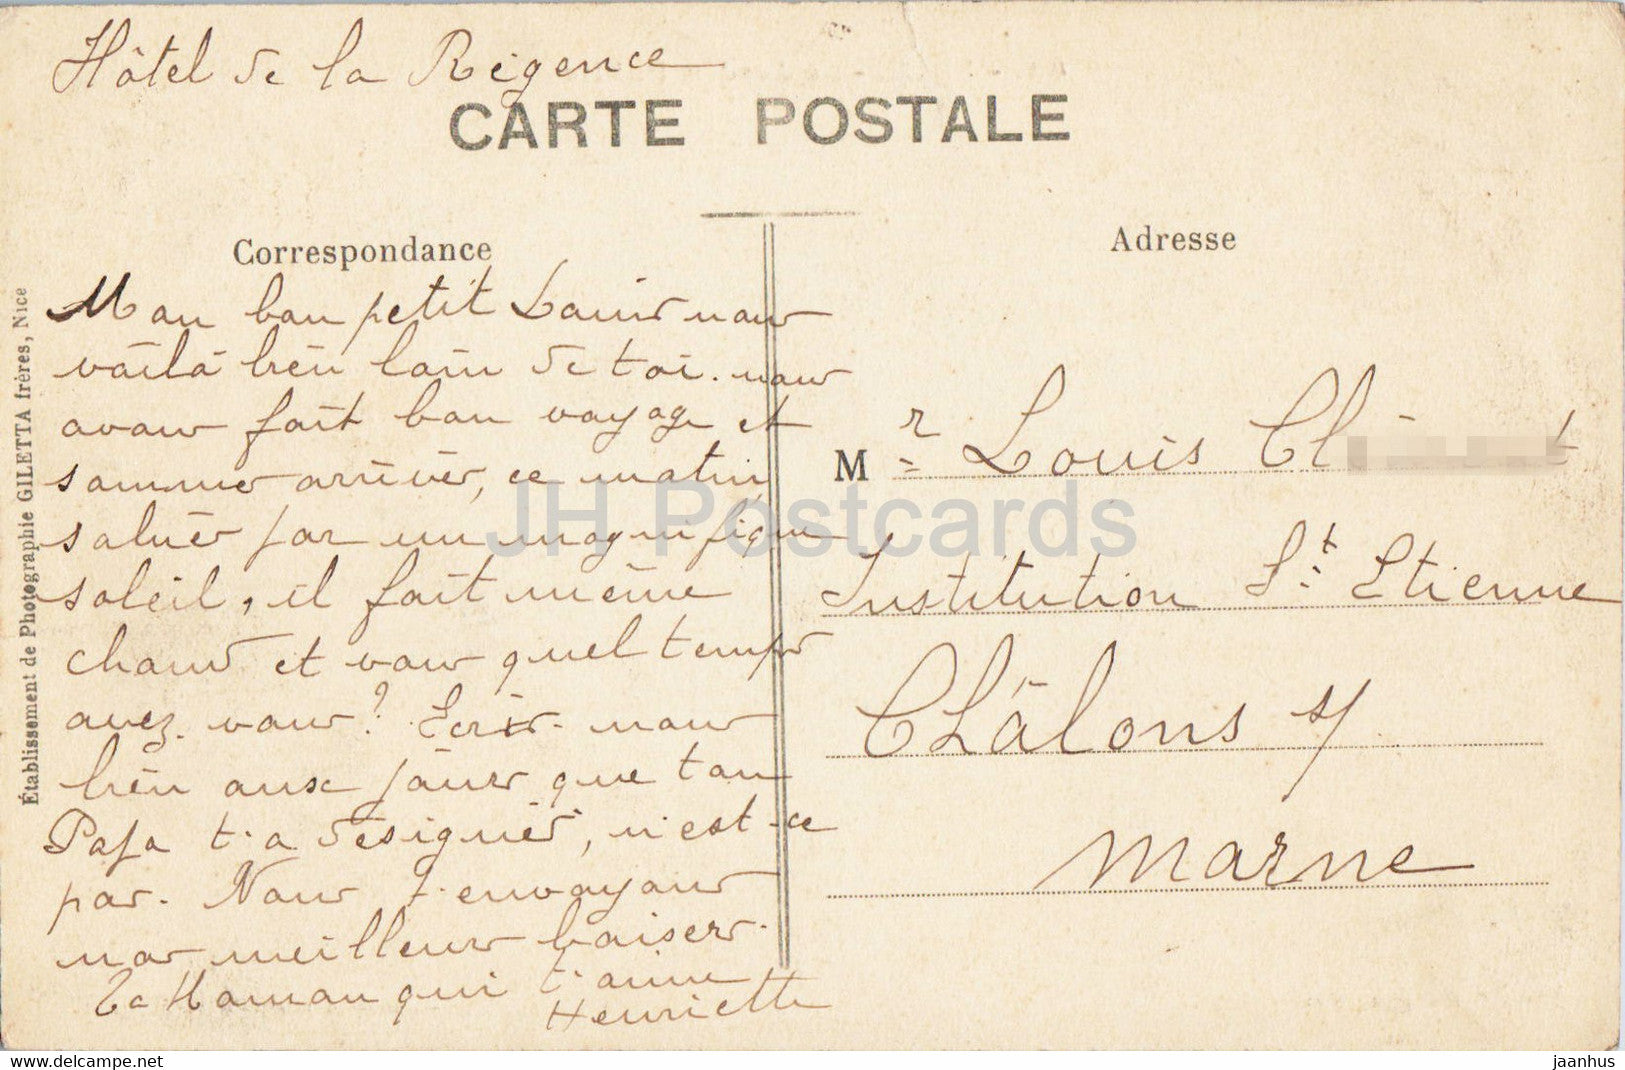 Hôtel de la Régence
CARTE POSTALE
Correspondance
Adresse
Mon bon petit Louis nous
voilà bien loin de toi. nous
avons fait bon voyage et
sommes arrivés, ce matin,
salués par un magnifique
soleil, il fait même
chaud et vous quel temps
avez-vous? Ecris-nous
bien aux jours que ton
Papa t'a désignés, n'est-ce
pas. Nous t'envoyons
nos meilleurs baisers.
Ta Maman qui t'aime
Henriette
Mr Louis Cl
Institution St Etienne
Châlons s/
Marne
Établissement de Photographie GILETTA frères, Nice
JH Postcards
www.jaanhus.com
jaanhus